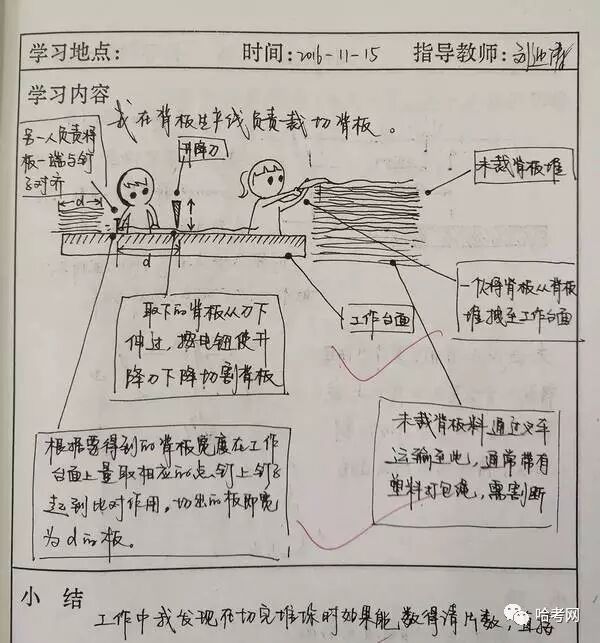 学习地点：
时间：2016-11-15
指导教师：刘
学习内容
我在背板生产线负责裁切背板。
另一人负责将
板一端与钉
子对齐
升降刀
未裁背板堆
d
d
一人将背板从背板
堆拽至工作台面
工作台面
取下的背板从刀下
伸过，按电钮使升
降刀下降切割背板
未裁背板料通过叉车
运输至此，通常带有
塑料打包绳，需割断
根据要得到的背板宽度在工作
台面上量取相应的点，钉上钉子
起到比对作用。切出的板即宽
为d的板。
小 结
工作中我发现在切完堆垛时如果能数得清片数，直接
哈考网